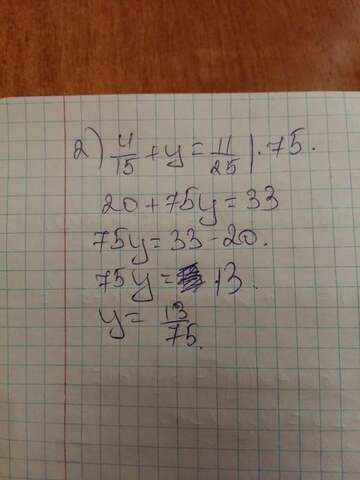 2) 4/15 + y = 11/25 | · 75.
20 + 75y = 33
75y = 33 - 20.
75y = 13.
y = 13/75.